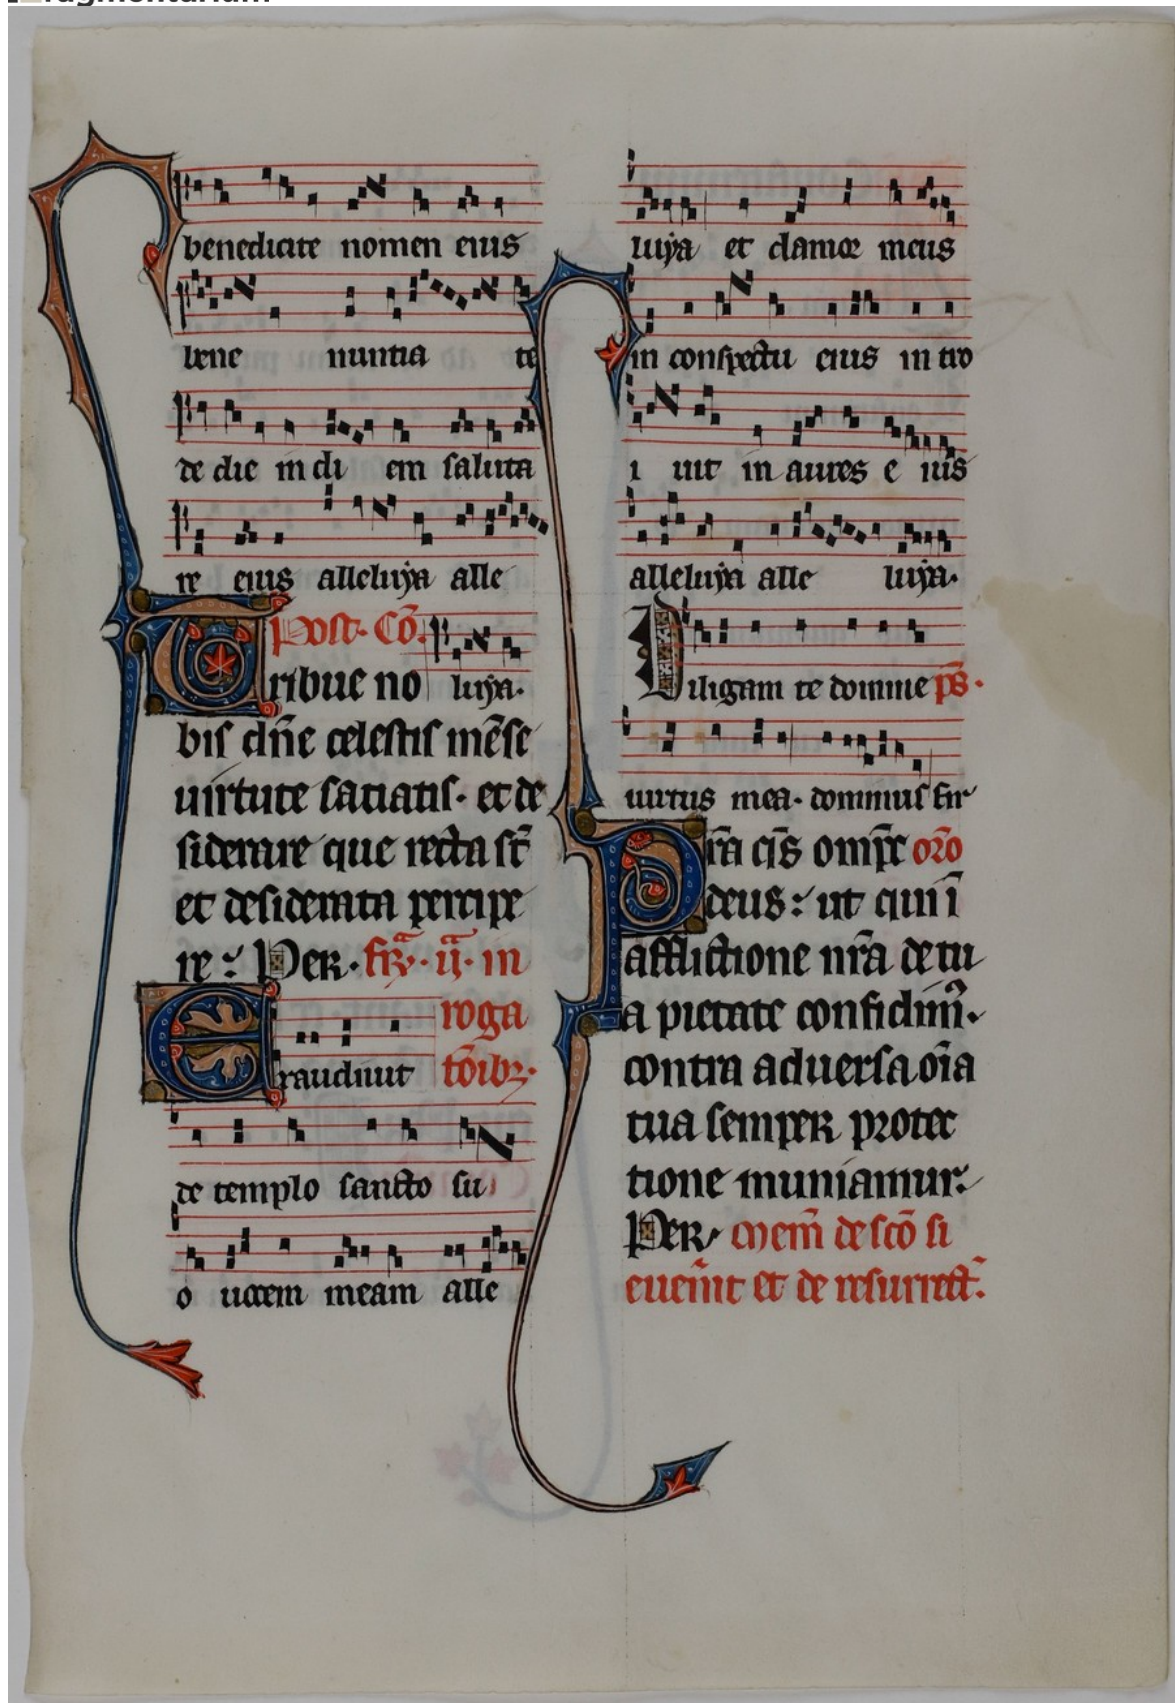 benedicite nomen eius
bene nuntia te
de die in di em saluta
re eius alleluya alle
Post· Cō.
Tribue no luya·
bis dn̄e celestis mēse
uirtute satiatis· et de
siderare que recta st̄
et desiderata percipe
re: Per· fr̄a· ij· in
roga
Exaudiuit tōibꝫ·
de templo sancto su
o uocem meam alle
luya et clamor meus
in conspectu eius in tro
i uit in aures e ius
alleluya alle luya·
Diligam te domine ps̄·
uirtus mea· dominus fir
Pr̄a qs̄ omp̄c or̄o
deus: ut qui ī
afflictione nr̄a de tu
a pietate confidim᷒·
contra aduersa oīa
tua semper protec
tione muniamur.
Per· Mem̄ de sc̄o si
euen̄it et de resurrect̄.